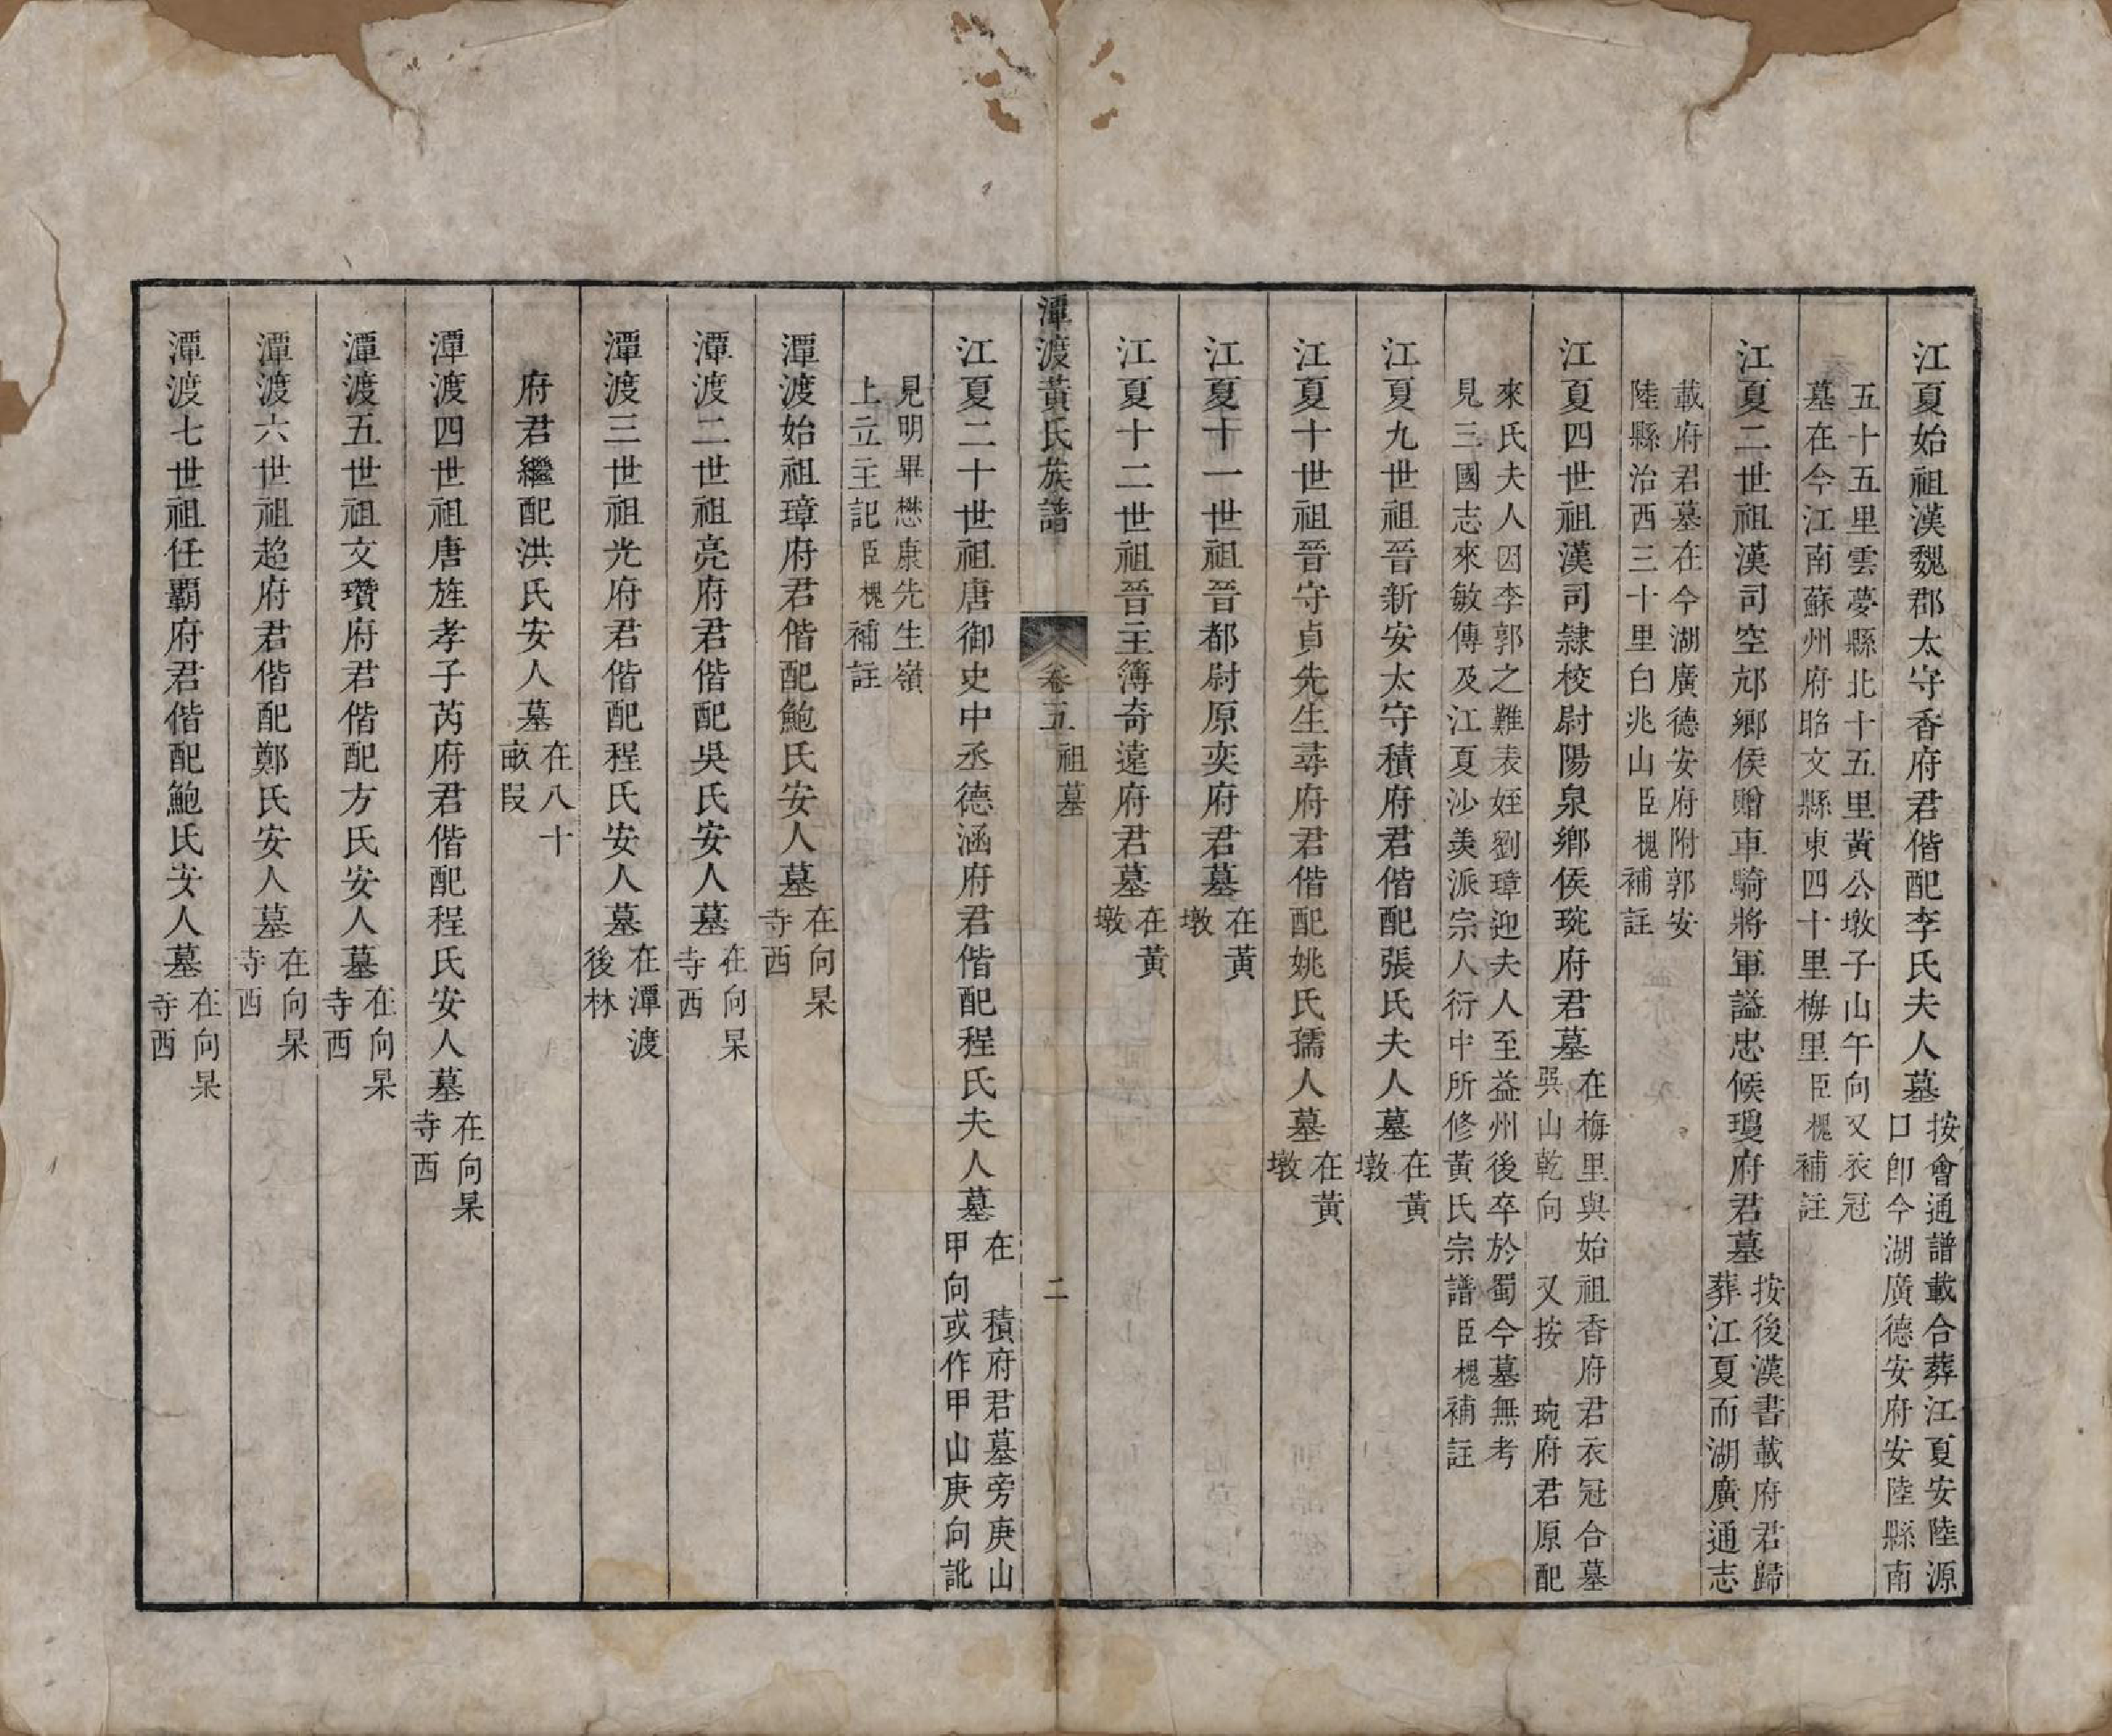 江夏始祖漢魏郡太守香府君偕配李氏夫人墓按會通譜載合葬江夏安陸源口卽今湖廣德安府安陸縣南
五十五里雲夢縣北十五里黃公墩子山午向又衣冠墓在今江南蘇州府昭文縣東四十里梅里臣槐補註
江夏二世祖漢司空邟鄉侯贈車騎將軍謚忠候瓊府君墓按後漢書載府君歸葬江夏而湖廣通志
載府君墓在今湖廣德安府附郭安陸縣治西三十里白兆山臣槐補註
江夏四世祖漢司隸校尉陽泉鄉侯琬府君墓在梅里與始祖香府君衣冠合墓吳山乾向 又按 琬府君原配
來氏夫人因李郭之難表姪劉璋迎夫人至益州後卒於蜀今墓無考見三國志來敏傳及江夏沙羡派宗人衍中所修黃氏宗譜臣槐補註
江夏九世祖晉新安太守積府君偕配張氏夫人墓在黃墩
江夏十世祖晉守貞先生尋府君偕配姚氏孺人墓在黃墩
江夏十一世祖晉都尉原奕府君墓在黃墩
江夏十二世祖晉主簿奇遠府君墓在黃墩
潭渡黃氏族譜 卷五 祖墓 二
江夏二十世祖唐御史中丞德涵府君偕配程氏夫人墓在 積府君墓旁庚山甲向或作甲山庚向訛
見明畢懋康先生嶺上立主記臣槐補註
潭渡始祖璋府君偕配鮑氏安人墓在向杲寺西
潭渡二世祖亮府君偕配吳氏安人墓在向杲寺西
潭渡三世祖光府君偕配程氏安人墓在潭渡後林
府君繼配洪氏安人墓在八十畝叚
潭渡四世祖唐旌孝子芮府君偕配程氏安人墓在向杲寺西
潭渡五世祖文瓚府君偕配方氏安人墓在向杲寺西
潭渡六世祖趋府君偕配鄭氏安人墓在向杲寺西
潭渡七世祖任霸府君偕配鮑氏安人墓在向杲寺西